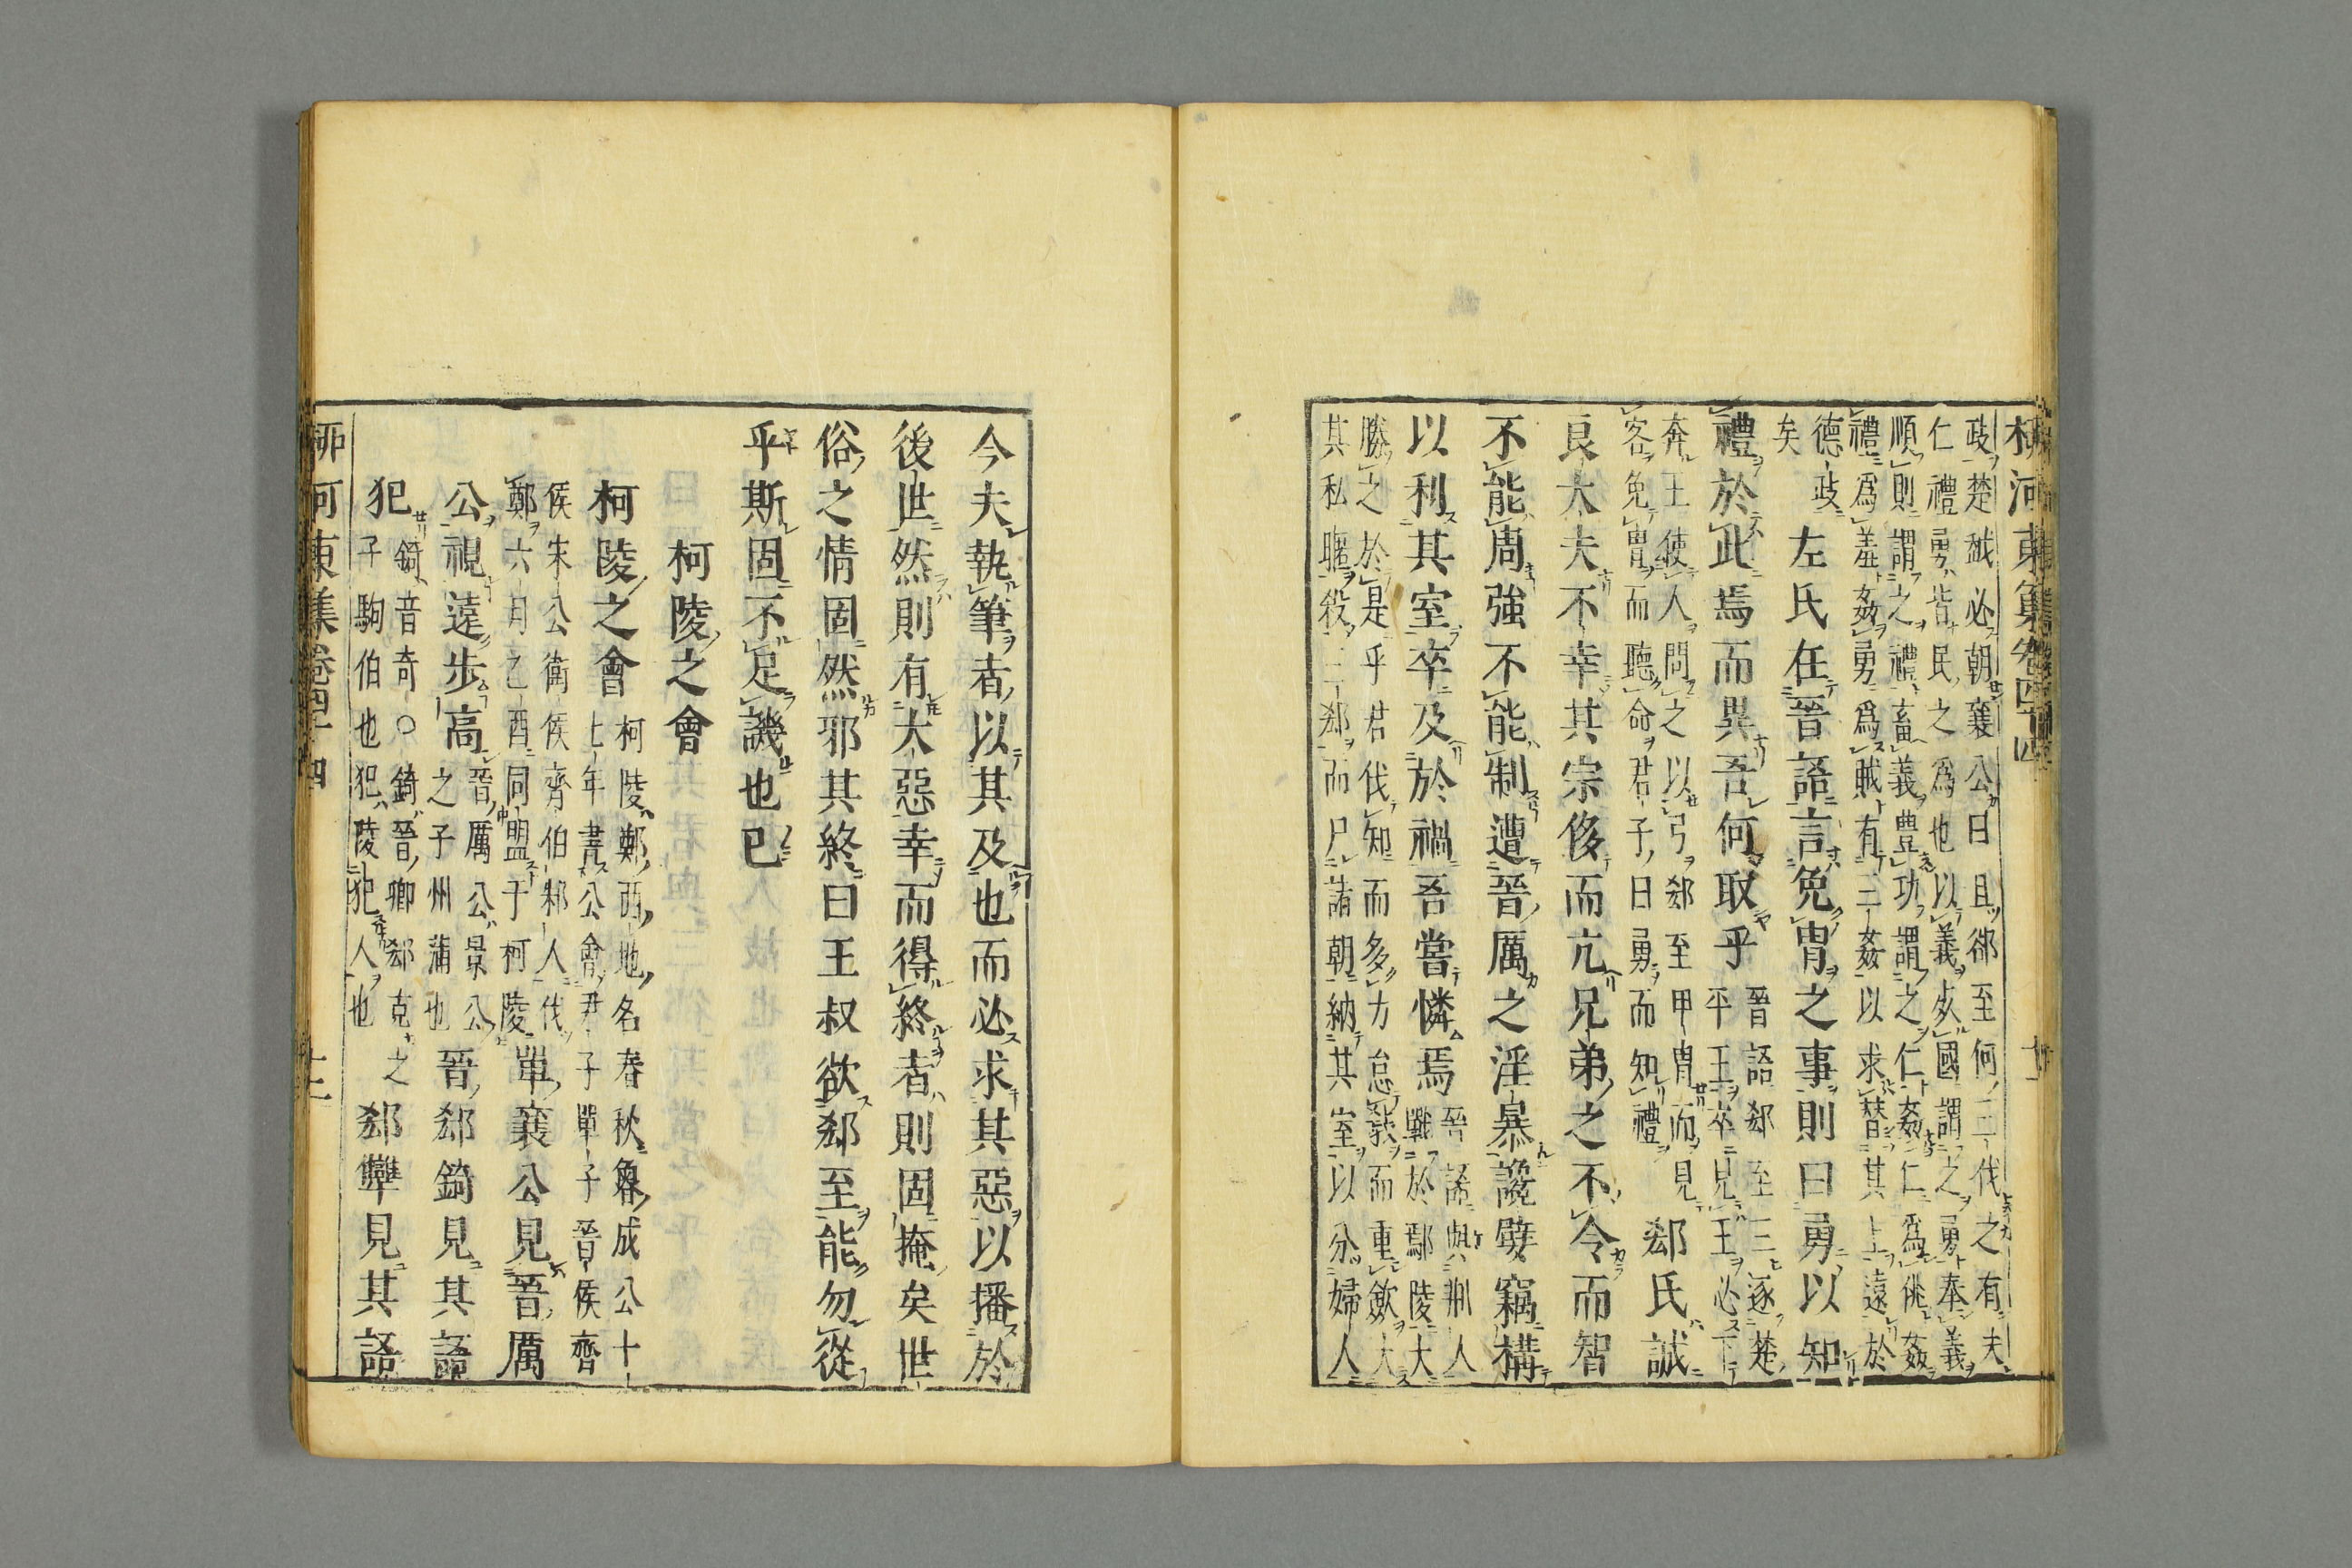 柳河東集卷四十四
政楚越必朝襄公曰且郤至何三伐之有夫
仁禮勇皆民之爲也以義死國謂之勇奉義
順則謂之禮畜義豊功謂之仁姦仁爲佻姦
禮爲羞姦勇爲賊有三姦以求替其上遠於
德政
矣
左氏在晉語言免冑之事則曰勇以知
禮於此焉而異吾何取乎
晉語郄至三逐楚
平王卒見王必下
奔王使人問之以弓郄至甲冑而見
客免冑而聽命君子曰勇而知禮
郄氏誠
良大夫不幸其宗侈而亢兄弟之不令而智
不能周強不能制遭晉厲之淫暴讒孼竊構
以利其室卒及於禍吾嘗憐焉
晉語與荆人
戰於鄢陵大
勝之於是乎君伐知而多力怠敎而重斂大
其私暱殺三郄而尸諸朝納其室以分婦人
今夫執筆者以其及也而必求其惡以播於
後世然則有大惡幸而得終者則固掩矣世
俗之情固然邪其終曰王叔欲郄至能勿從
乎斯固不足譏也已
柯陵之會
柯陵之會
柯陵鄭西地名春秋魯成公十
七年書公會尹子單子晉侯齊
侯宋公衞侯齊伯邾人伐
鄭六月乙酉同盟于柯陵
單襄公見晉厲
公視遠步高
晉厲公景公
之子州蒲也
晉郄錡見其語
犯
錡音奇〇錡晉卿郄克之
子駒伯也犯陵犯人也
郄犨見其語
柳河東集卷四十四